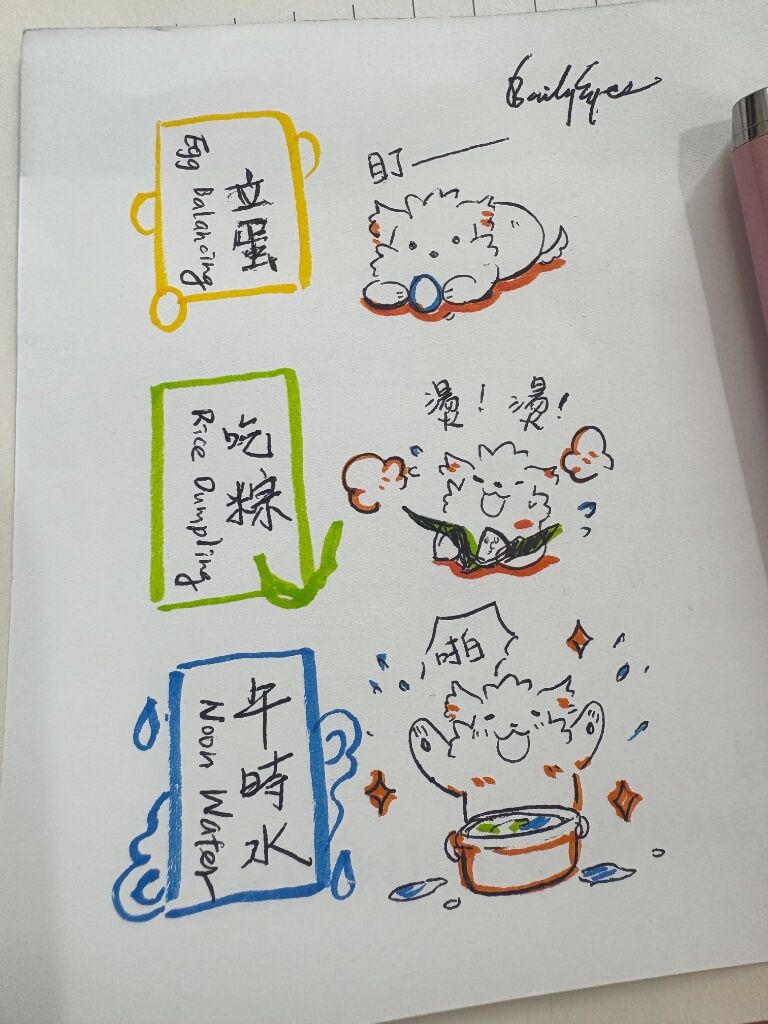 BailyEyes
立蛋
Egg Balancing
盯——
吃粽
Rice Dumpling
燙！燙！
午時水
Noon Water
啪